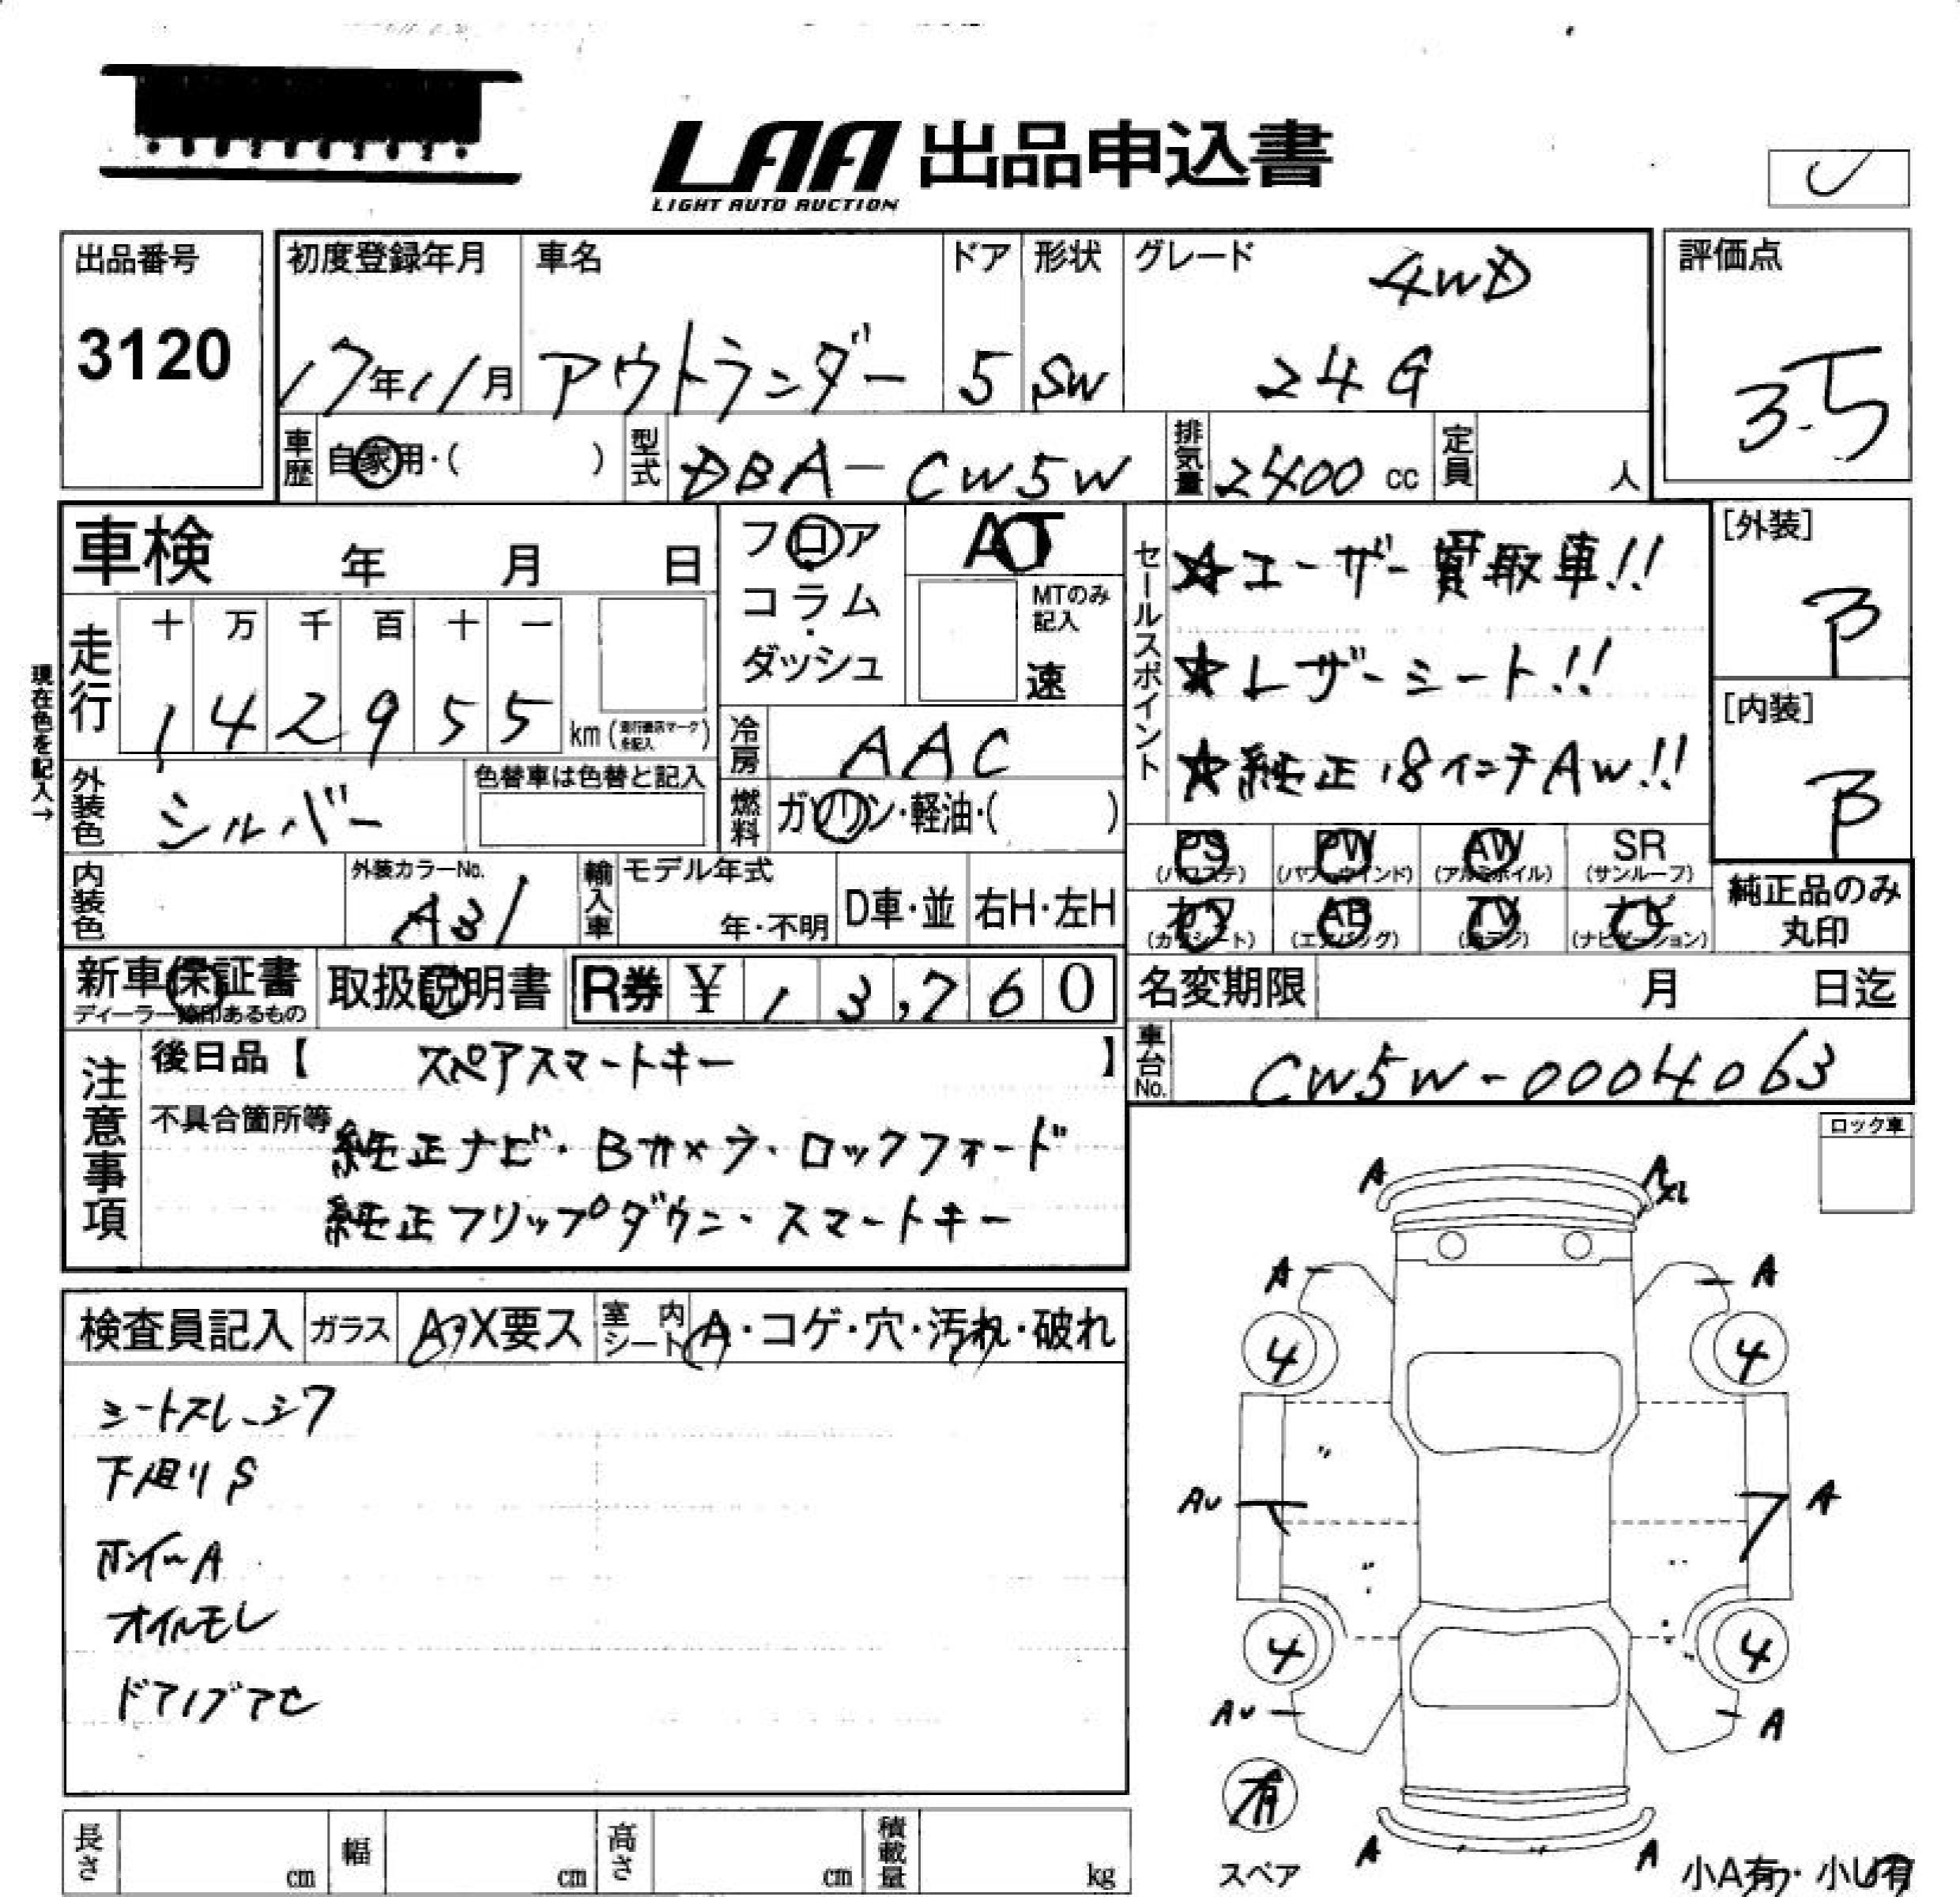 LAA 出品申込書
LIGHT AUTO AUCTION
出品番号
3120
初度登録年月
17年11月
車名
アウトランダー
ドア
5
形状
SW
グレード
4WD
24G
評価点
3.5
車歴
自家用・( )
型式
DBA-CW5W
排気量
2400 cc
定員
人
[外装]
B
[内装]
B
車検 年 月 日
現在色を記入→
走行
十 万 千 百 十 一
1 4 2 9 5 5
km
外装色
シルバー
色替車は色替と記入
内装色
外装カラーNo.
A31
輸入車
モデル年式
年・不明
D車・並
右H・左H
フロア
コラム
・
ダッシュ
AT
MTのみ
記入
速
冷房
AAC
燃料
ガソリン・軽油・( )
セールスポイント
★ユーザー買取車!!
★レザーシート!!
★純正18インチAW!!
PS
(パワステ)
PW
(パワーウインド)
AW
(アルミホイル)
SR
(サンルーフ)
カワ
(カワシート)
AB
(エアバッグ)
TV
ナビ
(ナビゲーション)
純正品のみ
丸印
新車保証書
ディーラー捺印あるもの
取扱説明書
R券 ¥ 13,760
名変期限 月 日迄
車台No.
CW5W-0004063
注意事項
後日品【 スペアスマートキー 】
不具合箇所等
純正ナビ・Bカメラ・ロックフォード
純正フリップダウン・スマートキー
ロック車
検査員記入
ガラス
A・X要ス
室内シート
A・コゲ・穴・汚れ・破れ
シートスレ、シワ
下廻りS
ホイールA
オイルモレ
ドアノブアセ
A
A
A
A
4
4
AU
A
4
4
AU
A
有
スペア
A
A
小A有・小U有
長さ cm
幅 cm
高さ cm
積載量 kg